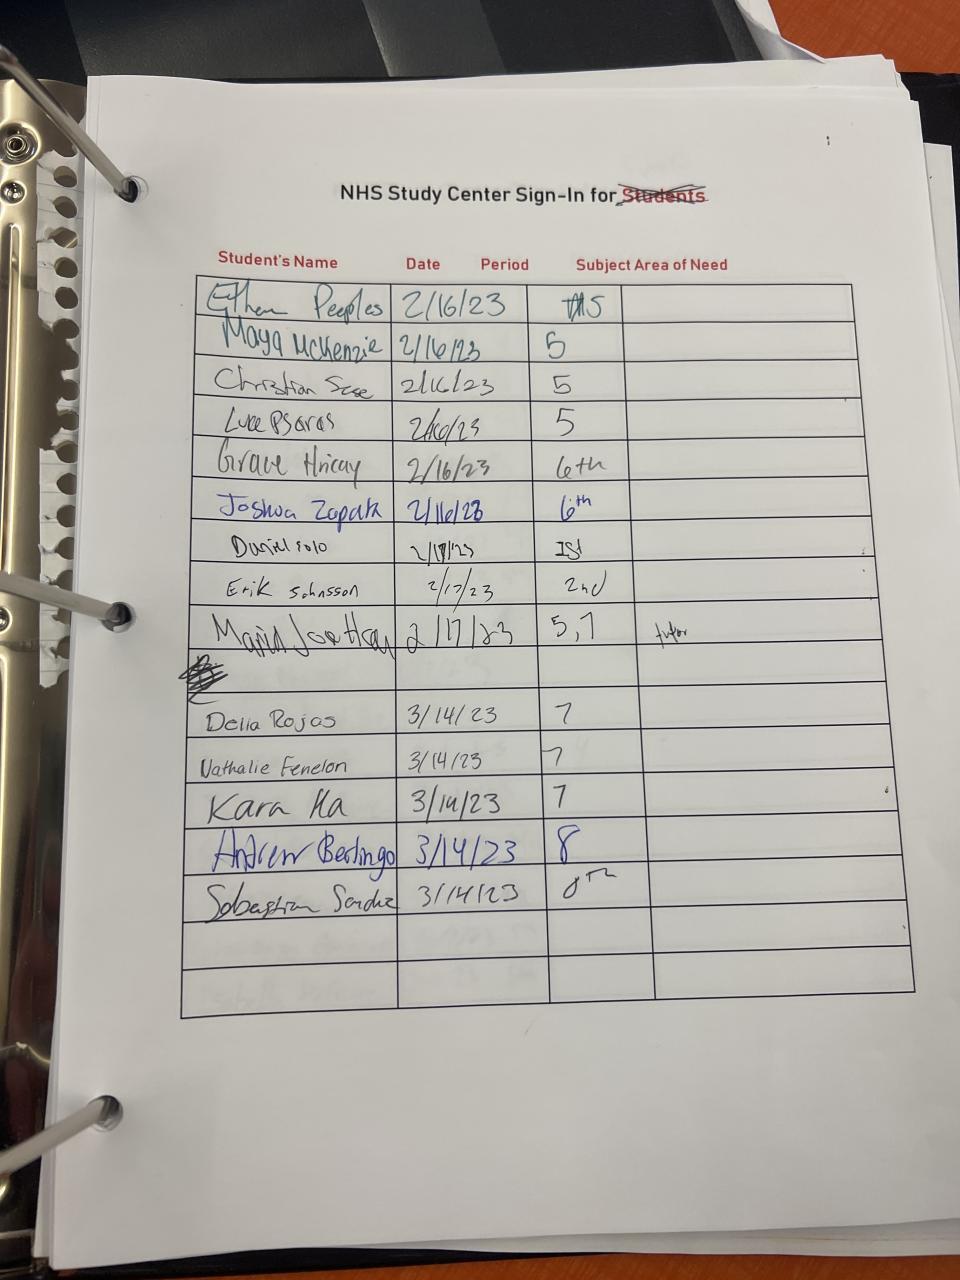 NHS Study Center Sign-In for Students
Student's Name Date Period Subject Area of Need
Ethan Peeples 2/16/23 5
Maya McKenzie 2/16/23 5
Christian 2/16/23 5
Luke Psaras 2/16/23 5
Grace Hricay 2/16/23 6th
Joshua Zapata 2/16/23 6th
Daniel Solo 2/17/23 1st
Erik Johnsson 2/17/23 2nd
Maria 2/17/23 5,7 tutor
Delia Rojas 3/14/23 7
Nathalie Fenelon 3/14/23 7
Kara Ha 3/14/23 7
Andrew Berlingo 3/14/23 8
Sebastian 3/14/23 8th